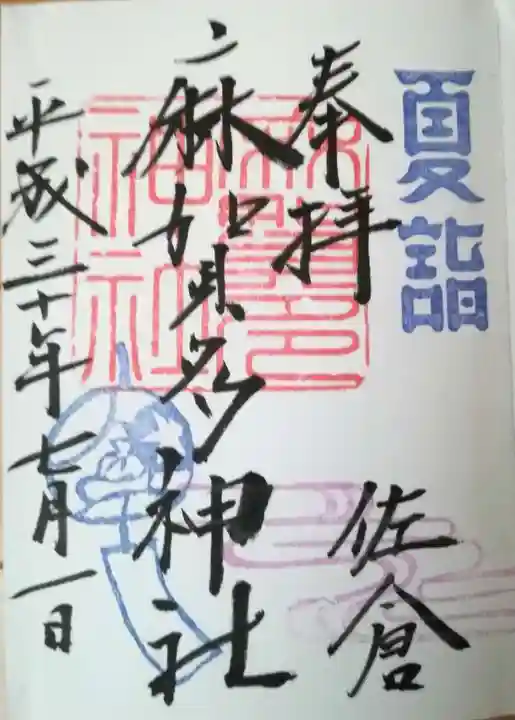 夏詣
奉拝
佐倉
麻賀多神社
麻賀多
神社
平成三十年七月一日